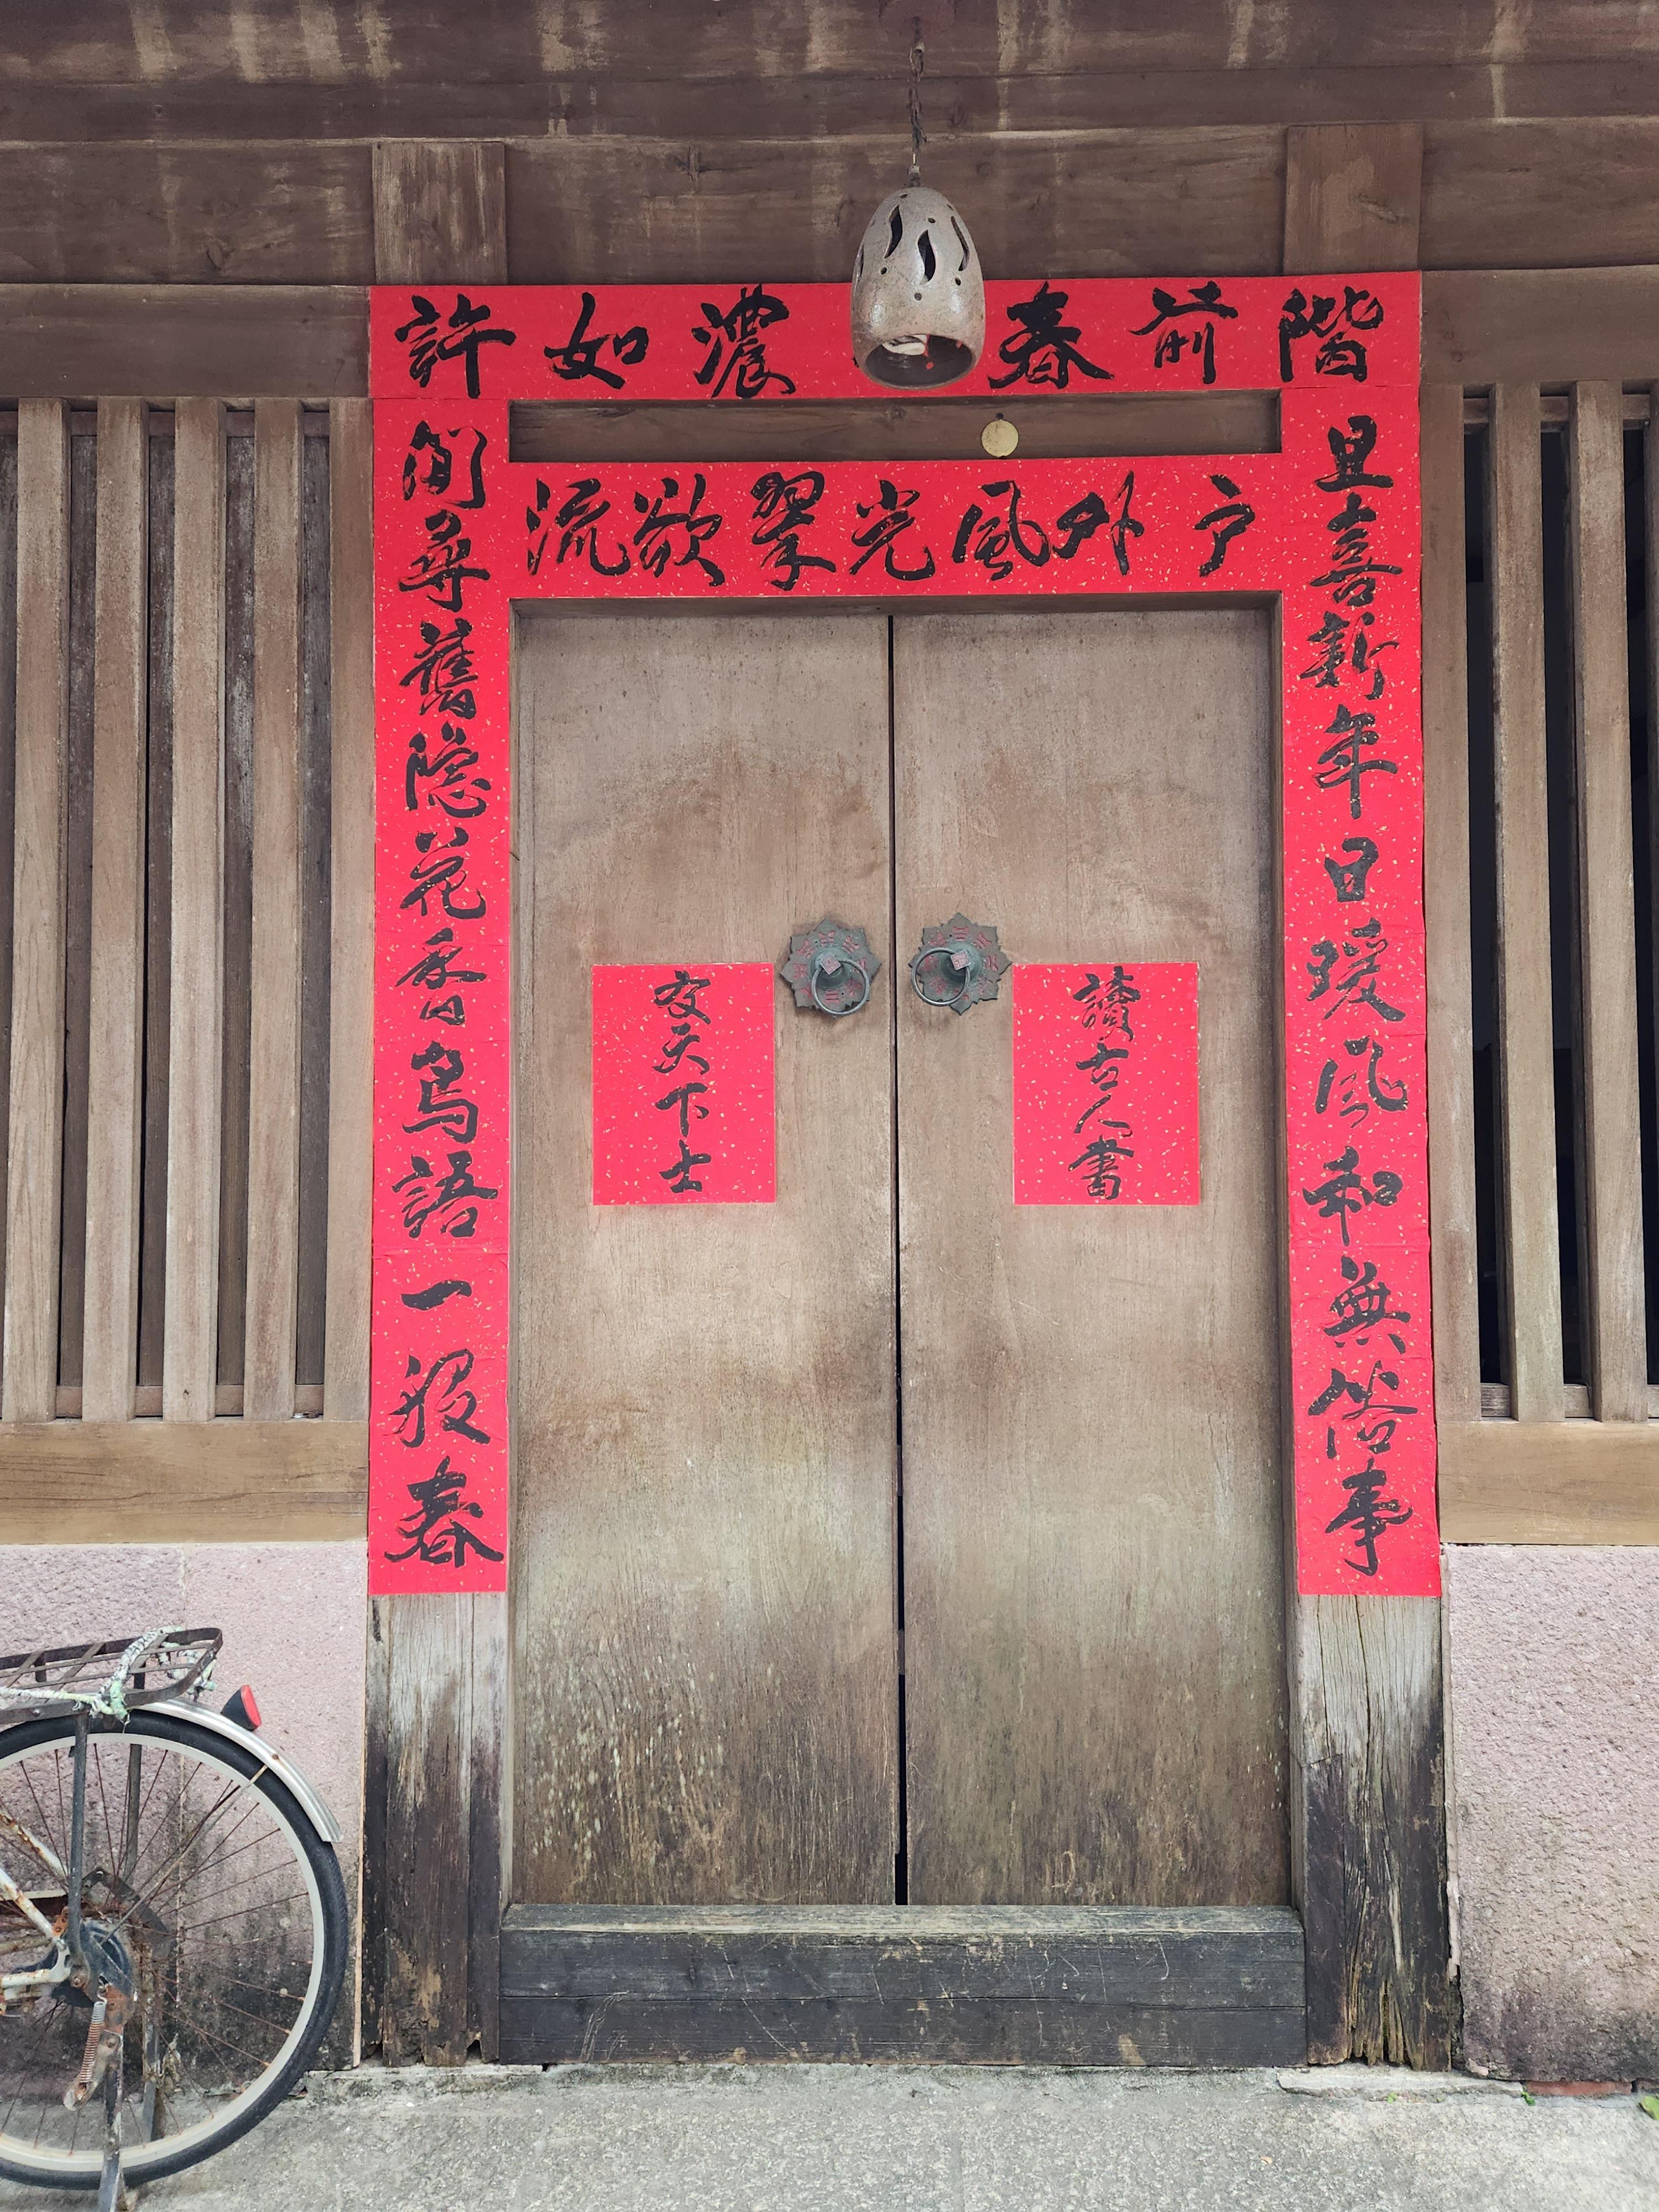 階前春濃如許
戶外風光翠欲流
且喜新年日暖風和無俗事
閒尋舊隱花香鳥語一般春
讀古人書
友天下士